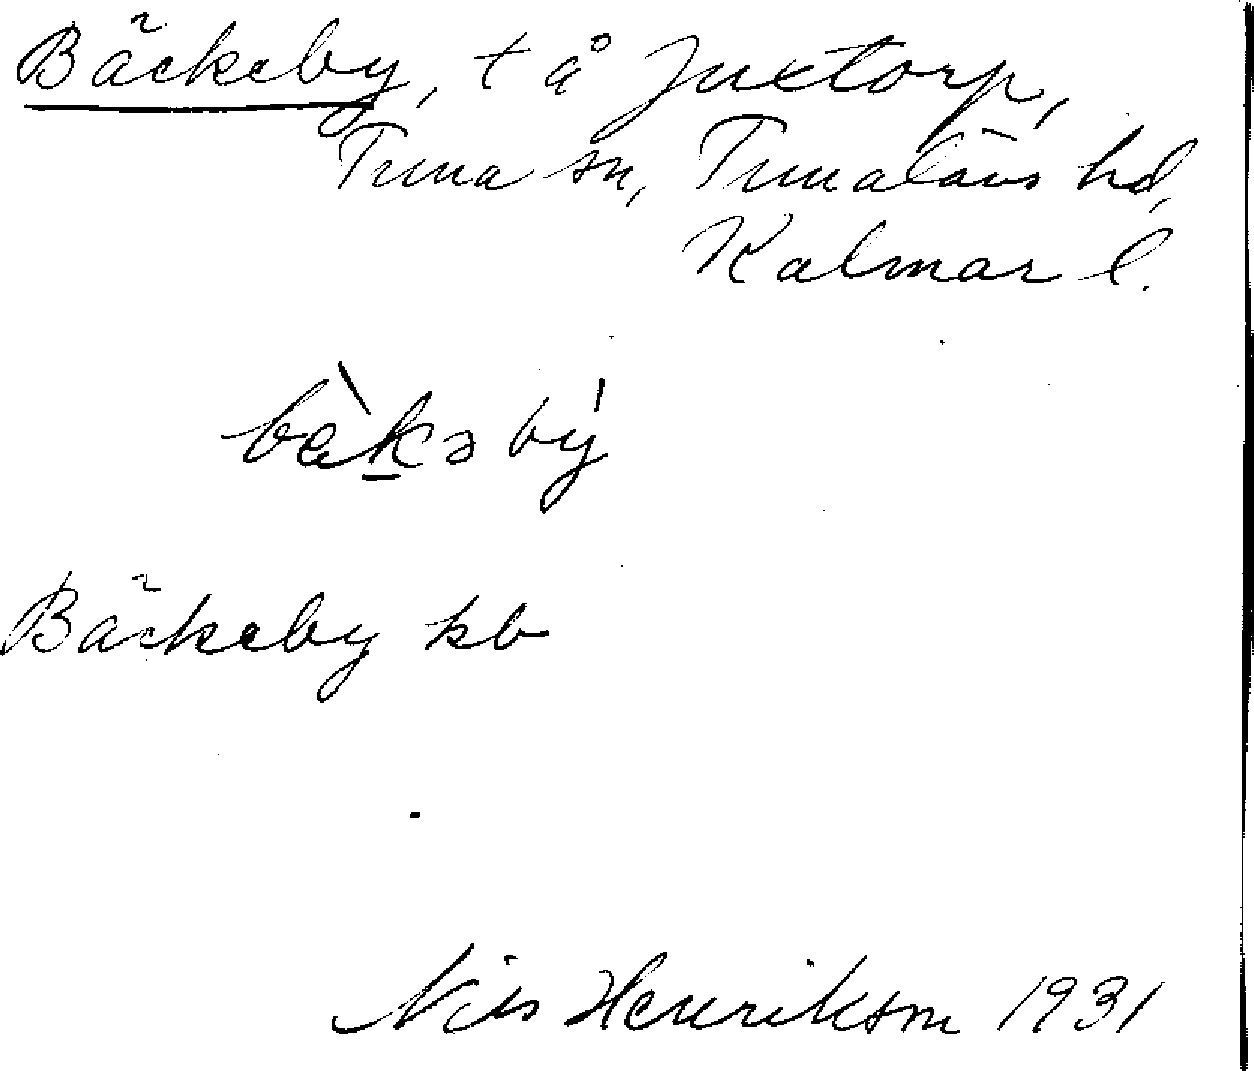 Bäckeby, t å Juxtorp,
Tuna sn, Tunaläns hd,
Kalmar l.
bàkəbý
Bäckeby kb
Nils Henrikson 1931